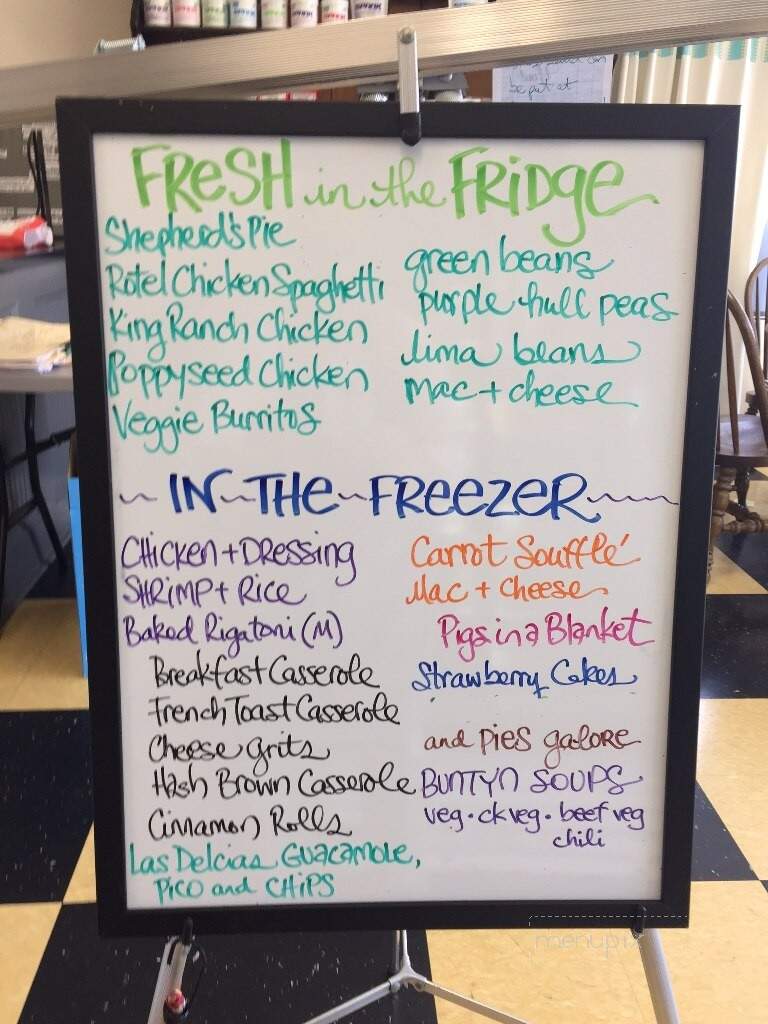 be put at
FRESH in the FRIDGE
Shepherd's Pie
Rotel Chicken Spaghetti
King Ranch Chicken
Poppyseed Chicken
Veggie Burritos
green beans
purple hull peas
lima beans
mac + cheese
IN THE FREEZER
CHICKEN + DRESSING
SHRIMP + RICE
Baked Rigatoni (M)
Breakfast Casserole
French Toast Casserole
Cheese grits
Hash Brown Casserole
Cinnamon Rolls
Las Delcias GUACAMOLE,
PICO and CHIPS
Carrot Soufflé
Mac + Cheese
Pigs in a Blanket
Strawberry Cakes
and pies galore
BUNTYN SOUPS
veg • ckveg • beef veg
chili
menupix